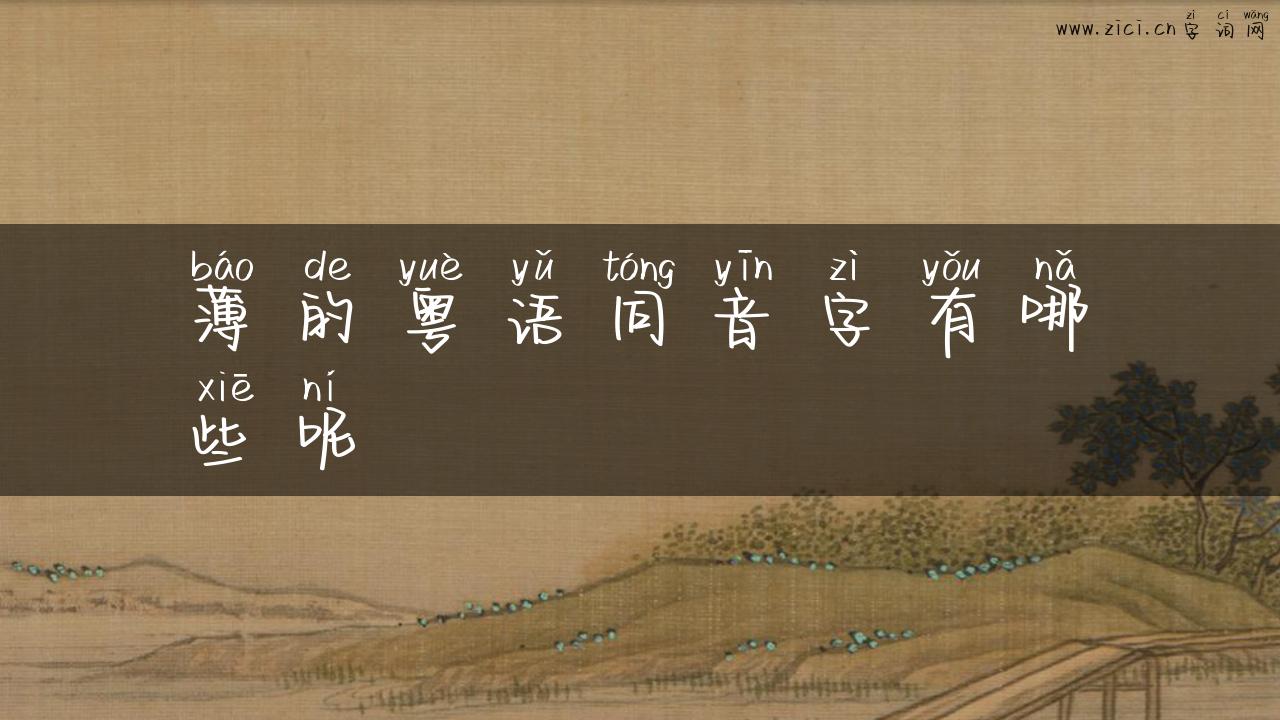 zì cí wǎng
www.zici.cn字词网
báo de yuè yǔ tóng yīn zì yǒu nǎ
薄的粤语同音字有哪
xiē ní
些呢